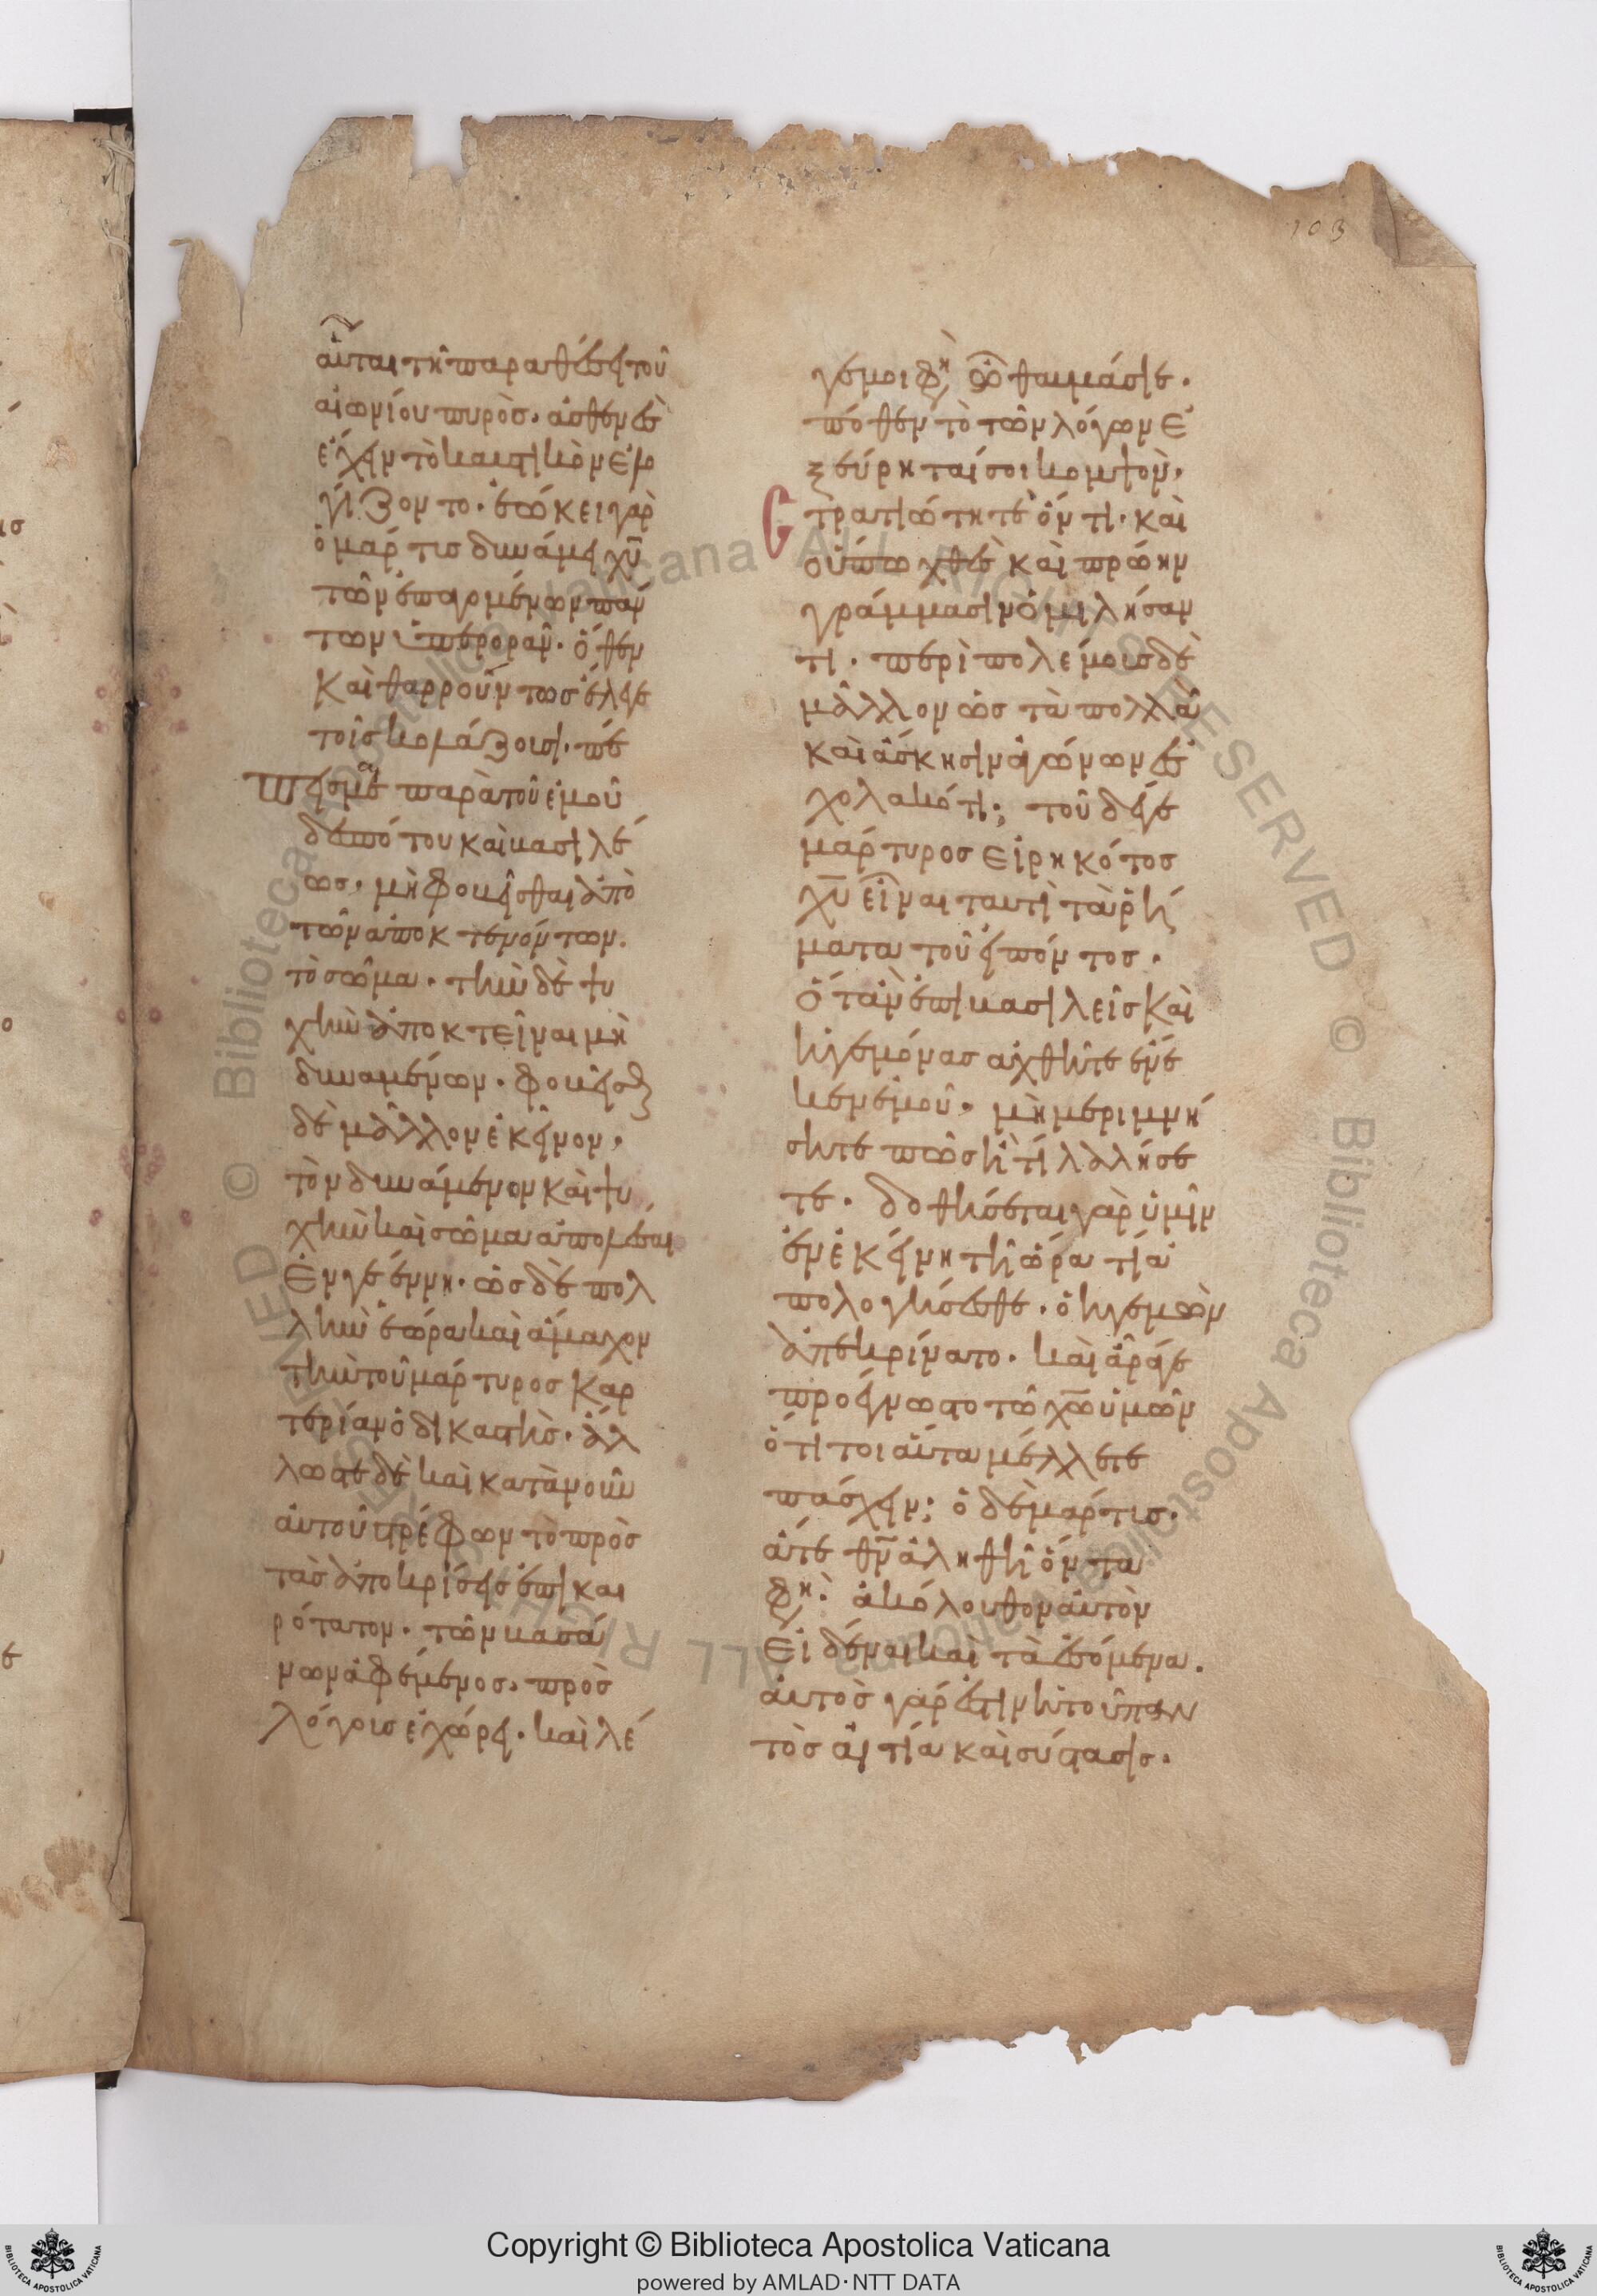 103
αὗται τῆ παραθέσει τοῦ
αἰωνίου πυρὸς· ἀσθενὲς
εἴχειν τὸ καυστικὸν ἐλο
γίζοντο· ἐῴκει γὰρ
ὁ μάρτυς δυνάμει χυ
τῶν ἐπαγομένων πάν
των ὑπερορᾶν· ὅθεν
καὶ θαρρούντως ἔλεγε
τοῖς κολάζουσι· πέ
πεισμαι παρὰ τοῦ ἐμοῦ
δεσπότου καὶ βασιλέ
ως· μὴ φοβεῖσθαι ἀπὸ
τῶν ἀποκτενόντων
τὸ σῶμα· τὴν δὲ ψυ
χὴν ἀποκτεῖναι μὴ
δυναμένων· φοβεῖσθ
δὲ μᾶλλον ἐκεῖνον·
τὸν δυνάμενον καὶ ψυ
χὴν καὶ σῶμα ἀπολέσαι
ἐν γεέννη· ὡς δὲ πολ
λὴν ἑώρα καὶ ἄμαχον
τὴν τοῦ μάρτυρος καρ
τερίαν ὁ δικαστὴς· ἄλ
λως τε δὲ καὶ κατὰ νοῦν
αὐτοῦ στρέφων τὸ πρὸς
τὰς ἀποκρίσεις ἐπικαι
ρότατον· τῶν βασά
νων ἀφέμενος· πρὸς
λόγοις ἐχώρει· καὶ λέ
γε μοι φη ὦ θαυμάσιε·
πόθεν τὸ τῶν λόγων ἐ
ξεύρηταί σοι κομψὸν·
στρατιώτη τε ὄντι· καὶ
οὔπω χθὲς καὶ πρώην
γράμμασιν ὁμιλήσαν
τι· περὶ πολέμους δὲ
μᾶλλον ὡς τὰ πολλὰ
καὶ ἄσκησιν ἀγώνων ἐσ
χολακότι; τοῦ δέ γε
μάρτυρος εἰρηκότος
χυ εἶναι ταυτὶ τὰ ῥή
ματα τοῦ εἰπόντος·
ὅταν ἐπὶ βασιλεῖς καὶ
ἡγεμόνας ἀχθῆτε ἕνε
κεν ἐμοῦ· μὴ μεριμνή
σητε πῶς ἢ τί λαλήσε
τε· δοθήσεται γὰρ ὑμῖν
ἐν ἐκείνη τῆ ὥρα τί ἀ
πολογήσεσθε· ὁ ἡγεμὼν
ἀπεκρίνατο· καὶ ἆρά γε
προέγνωστο τῶ χω ὑμῶν
ὅτι τοιαῦτα μέλλετε
πάσχειν; ὁ δὲ μάρτυς·
ἅτε θν ἀληθῆ ὄντα
φη· ἀκόλουθον αὐτὸν
εἰδέναι καὶ τὰ ἐσόμενα·
αὐτὸς γάρ ἐστιν ἡ τοῦ παν
τὸς αἰτία καὶ σύστασις·
Copyright © Biblioteca Apostolica Vaticana
powered by AMLAD·NTT DATA